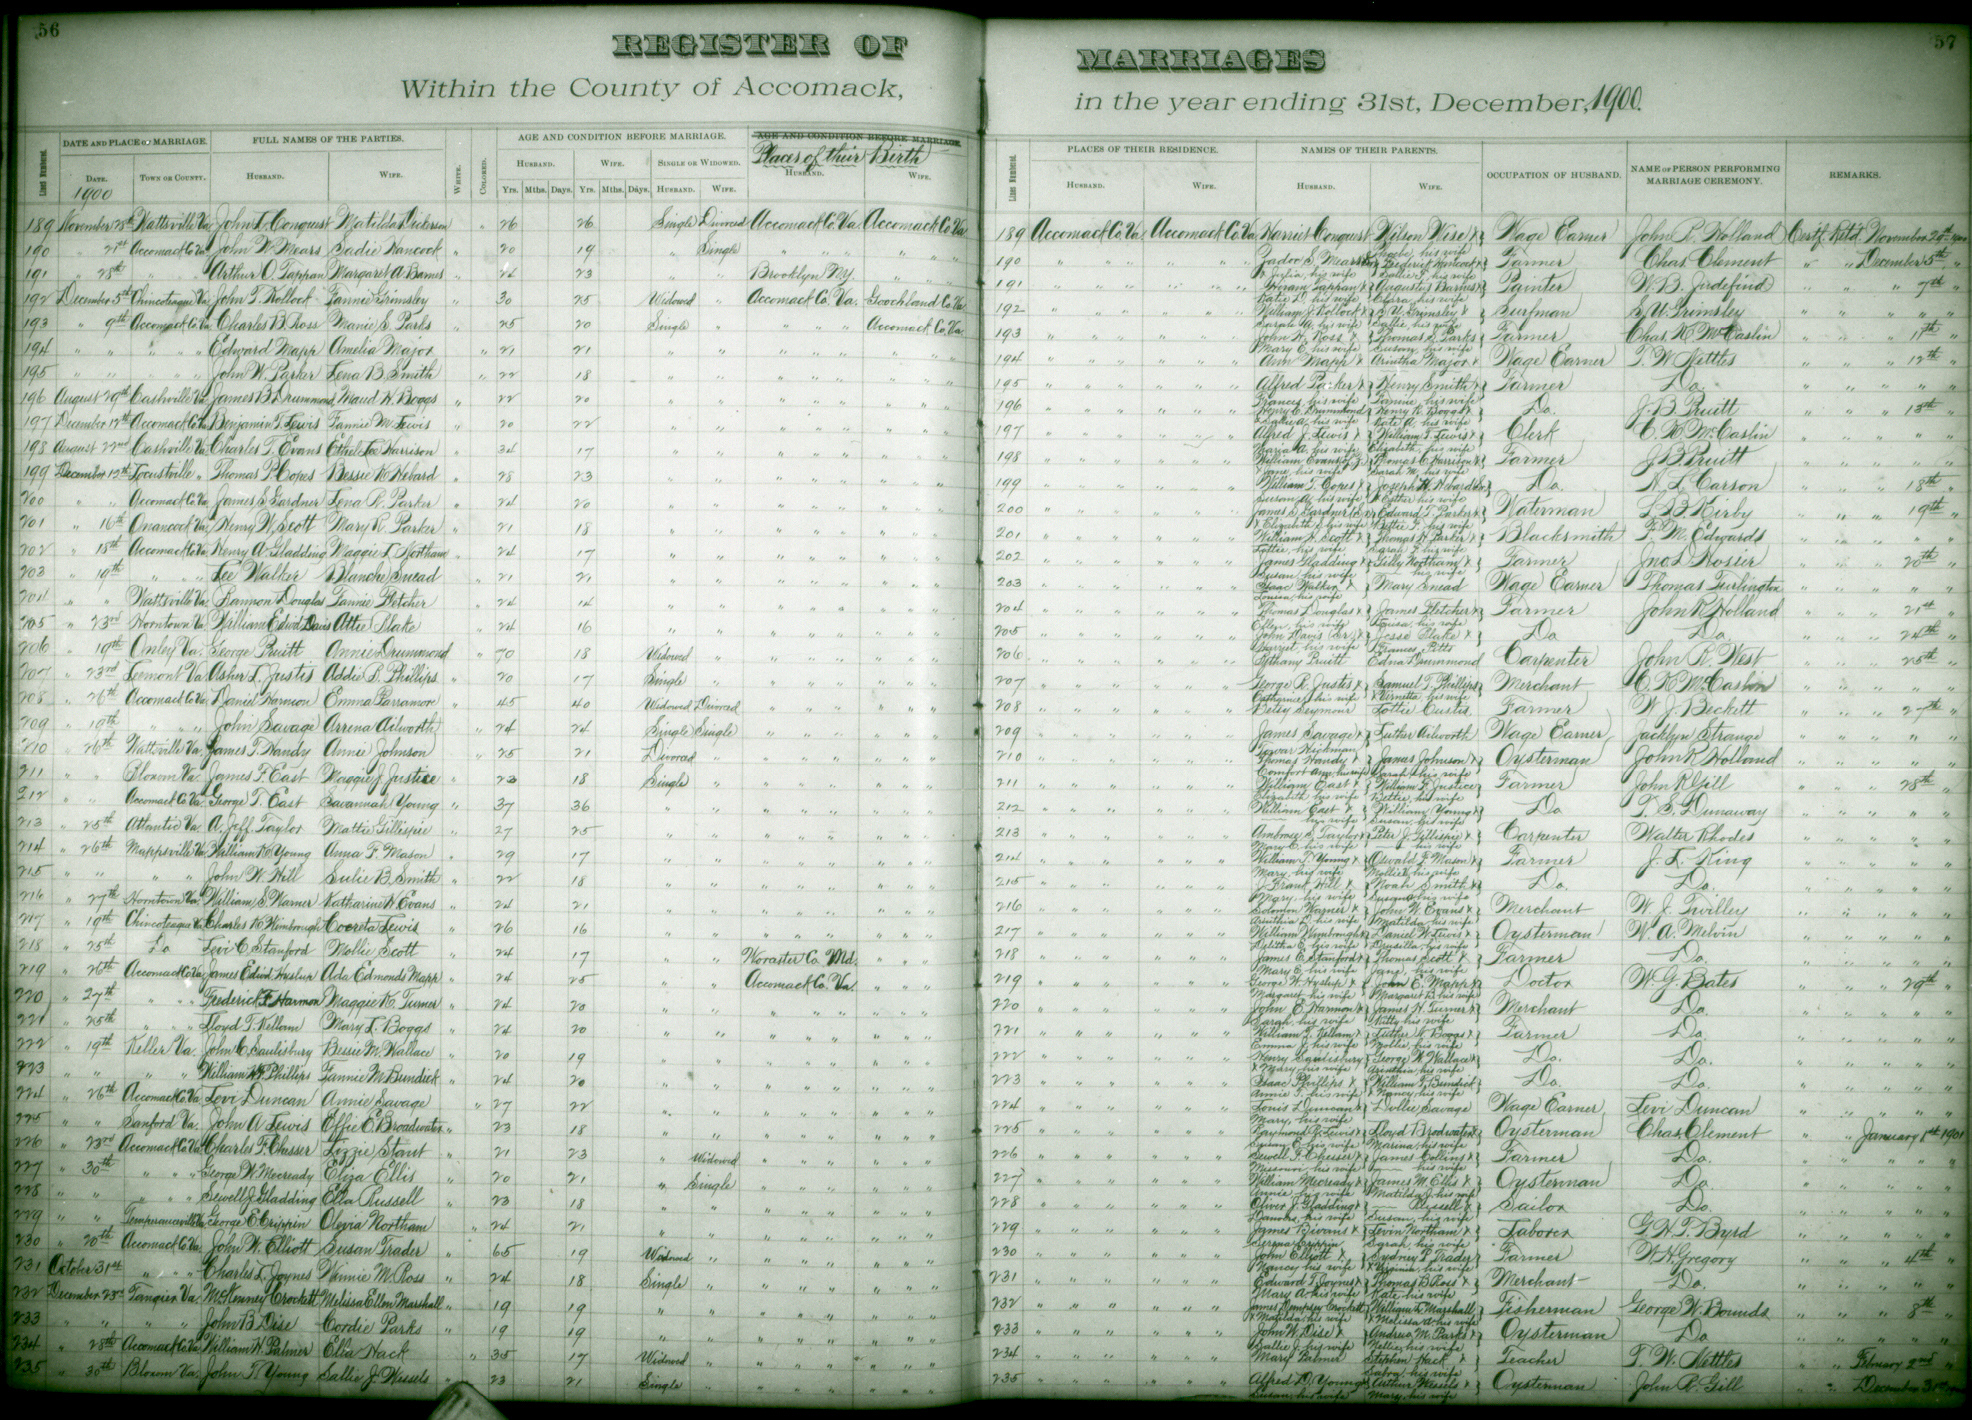 56
REGISTER OF
Within the County of Accomack,
DATE AND PLACE OF MARRIAGE. FULL NAMES OF THE PARTIES. AGE AND CONDITION BEFORE MARRIAGE. AGE AND CONDITION BEFORE MARRIAGE.
Places of their Birth
Lines Numbered. DATE. TOWN OR COUNTY. HUSBAND. WIFE. WHITE. COLORED. HUSBAND. WIFE. SINGLE OR WIDOWED. HUSBAND. WIFE.
1900 Yrs. Mths. Days. Yrs. Mths. Days. HUSBAND. WIFE.
189 November 28th Wattsville Va John L. Conquest Matilda Dickerson " 26 26 Single Divorced Accomack Co. Va Accomack Co. Va
190 " 21st Accomack Co Va John W. Mears Sadie Hancock " 20 19 " Single " "
191 " 28th " " Arthur O. Tappan Margaret A. Barnes " 24 23 " " Brooklyn N.Y. "
192 December 5th Chincoteague Va John T. Kollock Fannie Grimsley " 30 25 Widowed " Accomack Co. Va. Goochland Co. Va
193 " 9th Accomack Co Va Charles B. Ross Manie S. Parks " 25 20 Single " " " Accomack Co. Va.
194 " " " " Edward Mapp Amelia Major " 21 21 " " " "
195 " " " " John W. Parker Lena B. Smith " 22 18 " " " "
196 August 29th Cashville Va James B. Drummond Maud H. Boggs " 22 20 " " " "
197 December 12th Accomack Co Va Benjamin T. Lewis Fannie M. Lewis " 20 22 " " " "
198 August 22nd Cashville Va Charles T. Evans Ethel Lee Harrison " 34 17 " " " "
199 December 12th Locustville " Thomas P. Copes Bessie K. Hebard " 28 23 " " " "
200 " " Accomack Co Va James S. Gardner Lena R. Parker " 24 20 " " " "
201 " 16th Onancock Va Henry W. Scott Mary R. Parker " 21 18 " " " "
202 " 18th Accomack Co Va Henry A. Gladding Maggie L. Northam " 24 17 " " " "
203 " 19th " " Lee Walker Blanche Snead " 21 21 " " " "
204 " " Wattsville Va Bannon Douglas Fannie Fletcher " 24 14 " " " "
205 " 23rd Horntown Va William Edwd Davis Attie Blake " 24 16 " " " "
206 " 19th Onley Va. George Pruitt Annie Drummond " 70 18 Widowed " " "
207 " 23rd Leemont Va Asher L. Justis Addie P. Phillips " 20 17 Single " " "
208 " 26th Accomack Co Va Daniel Harmon Emma Parramore " 45 40 Widowed Divorced " "
209 " 19th " " John Savage Arrena Ailworth " 24 24 Single Single " "
210 " 26th Wattville Va James T. Handy Annie Johnson " 25 21 Divorced " " "
211 " " Bloxom Va. James F. East Maggie J. Justice " 23 18 Single " " "
212 " " Accomack Co Va George T. East Savannah Young " 37 36 " " " "
213 " 25th Atlantic Va A. Jeff. Taylor Mattie Gillespie " 27 25 " " " "
214 " 26th Mappsville Va William K. Young Anna F. Mason " 29 17 " " " "
215 " " " " John W. Hill Sulie B. Smith " 22 18 " " " "
216 " 27th Horntown Va. William S. Warner Katharine H. Evans " 24 21 " " " "
217 " 19th Chincoteague Va Charles K. Wimbrough Cocreta Lewis " 26 16 " " " "
218 " 25th Do Levi C. Stanford Mollie Scott " 24 17 " " Worcester Co. Md. "
219 " 26th Accomack Co Va James Edwd Hyslup Ada Edmonds Mapp " 24 25 " " Accomack Co. Va "
220 " 27th " " Frederick F. Harmon Maggie K. Turner " 24 20 " " " "
221 " 25th " " Lloyd T. Kellam Mary L. Boggs " 24 20 " " " "
222 " 19th Keller Va. John C. Saulisbury Bessie M. Wallace " 20 19 " " " "
223 " " " " William H. Phillips Fannie M. Bundick " 24 20 " " " "
224 " 26th Accomack Co Va Levi Duncan Annie Savage " 27 22 " " " "
225 " " Sanford Va. John A. Lewis Effie E. Broadwater " 23 18 " " " "
226 " 23rd Accomack Co Va Charles F. Chesser Lizzie Stant " 21 23 " Widowed " "
227 " 30th " " George W. Mccready Eliza Ellis " 20 21 " Single " "
228 " " " " Sewell J. Gladding Ella Russell " 23 18 " " " "
229 " " Temperanceville Va George E. Crippin Olevia Northam " 24 21 " " " "
230 " 20th Accomack Co Va John W. Elliott Susan Trader " 65 19 Widowed " " "
231 October 31st " " Charles L. Joynes Winnie M. Ross " 24 18 Single " " "
232 December 23rd Tangier Va. McKenney Crockett Melissa Ellen Marshall " 19 19 " " " "
233 " " " " John B. Dise Cordie Parks " 19 19 " " " "
234 " 28th Accomack Co Va William H. Palmer Ella Hack " 35 17 Widowed " " "
235 " 30th Bloxom Va. John T. Young Sallie J. Wessels " 23 21 Single " " "
57
MARRIAGES
in the year ending 31st, December, 1900.
Lines Numbered. PLACES OF THEIR RESIDENCE. NAMES OF THEIR PARENTS. OCCUPATION OF HUSBAND. NAME OF PERSON PERFORMING MARRIAGE CEREMONY. REMARKS.
HUSBAND. WIFE. HUSBAND. WIFE.
189 Accomack Co. Va Accomack Co. Va Harriet Conquest Wilson Wise & Phoebe, his wife Wage Earner John R. Holland Certf. Retd. November 29th 1900
190 " " Zadoc S. Mears & Julia, his wife Frederick Hancock & Sallie, his wife Farmer Chas. Clement " " December 5th "
191 " " Hiram Tappan & Katie D. his wife Augustus Barnes & Clara, his wife Painter W. B. Judefind " " " 7th "
192 " " William J. Kollock & Sarah A. his wife S. U. Grimsley & Sallie, his wife Surfman S. U. Grimsley " " " " "
193 " " John H. Ross & Mary E. his wife Thomas S. Parks & Susan, his wife Farmer Chas. K. McCaslin " " " 11th "
194 " " Ann Mapp & Arintha Major Wage Earner T. W. Nettles " " " 12th "
195 " " Alfred Parker & Frances, his wife Henry Smith & Fannie, his wife Farmer Do. " " " " "
196 " " Henry C. Drummond & his wife Henry R. Boggs & Kate A. his wife Do. J. B. Pruitt " " " 13th "
197 " " Alfred J. Lewis & Maria A. his wife William T. Lewis & Elizabeth, his wife Clerk C. K. McCaslin " " " " "
198 " " William Evans & Jane, his wife Thomas C. Harrison & Sarah M. his wife Farmer J. B. Pruitt " " " " "
199 " " William T. Copes & Susan A. his wife Joseph H. Hebard & Esther his wife Do. H. L. Carson " " " 18th "
200 " " James S. Gardner & Elizabeth, his wife Edward T. Parker & Bettie F. his wife Waterman L. B. Kirby " " " 19th "
201 " " William S. Scott & Lottie, his wife Thomas H. Parker & Sarah F. his wife Blacksmith F. M. Edwards " " " " "
202 " " James Gladding & Susan, his wife Gilly Northam & his wife Farmer Jno. L. Rosser " " " 20th "
203 " " Isaac Walker & Louisa, his wife Mary Snead Wage Earner Thomas Furlington " " " " "
204 " " Thomas Douglas & Ellen, his wife James Fletcher & Louisa, his wife Farmer John R. Holland " " " 21st "
205 " " John Davis & Harriet, his wife Jesse Blake & Frances Pitts Do. Do. " " " 24th "
206 " " Bethany Pruitt Edna Drummond Carpenter John R. West " " " 25th "
207 " " George R. Justis & Catharine, his wife Samuel T. Phillips & Vernetta, his wife Merchant C. K. McCaslin " " " " "
208 " " Betsy Seymour Lottie Custis Farmer W. J. Beckett " " " 27th "
209 " " James Savage & Tamar Hickman Luther Ailworth Wage Earner Jacklyn Strange " " " " "
210 " " Thomas Handy & Comfort Ann, his wife James Johnson & Sarah, his wife Oysterman John R. Holland " " " " "
211 " " William East & Elizabeth his wife William F. Justice & Bettie, his wife Farmer John R. Gill " " " 28th "
212 " " William East & his wife William Young & Susan, his wife Do T. S. Dunaway " " " " "
213 " " Ambrose S. Taylor & Mary E. his wife Peter J. Gillespie & his wife Carpenter Walter Rhodes " " " " "
214 " " William T. Young & Mary, his wife Oswald F. Mason & Mollie, his wife Farmer J. L. King " " " " "
215 " " J. Frank Hill & Mary, his wife Noah Smith & Susan, his wife Do. Do. " " " " "
216 " " Solomon Warner & his wife John W. Evans & Matilda, his wife Merchant W. J. Twilley " " " " "
217 " " William Wimbrough & Delitha E. his wife Daniel W. Lewis & Drusilla, his wife Oysterman W. A. Melvin " " " " "
218 " " James E. Stanford & Mary E. his wife Thomas Scott & Jane, his wife Farmer Do. " " " " "
219 " " George W. Hyslup & Margaret, his wife John E. Mapp & Margaret B. his wife Doctor W. G. Bates " " " 29th "
220 " " John E. Harmon & Sarah, his wife James H. Turner & Kitty his wife Merchant Do. " " " " "
221 " " William T. Kellam & Emma J. his wife Luther W. Boggs & Mollie, his wife Farmer Do " " " " "
222 " " Henry Saulisbury & Mary, his wife George W. Wallace & Arinthia his wife Do. Do. " " " " "
223 " " Isaac Phillips & Annie T. his wife William T. Bundick & Nancy, his wife Do. Do. " " " " "
224 " " Louis Duncan & Mary, his wife Dollie Savage Wage Earner Levi Duncan " " " " "
225 " " Raymond R. Lewis & his wife Lloyd Broadwater & Marina, his wife Oysterman Chas. Clement " " January 1st 1901
226 " " Sewell F. Chesser & Missouri, his wife James Collins & his wife Farmer Do. " " " " "
227 " " William Mccready & Annie, his wife James M. Ellis & Matilda J. his wife Oysterman Do. " " " " "
228 " " Oliver J. Gladding & his wife Russell & Susan, his wife Sailor Do. " " " " "
229 " " James Bivans & Serena Crippin Levin Northam & Sarah, his wife Laborer G. H. T. Byrd " " " " "
230 " " John Elliott & Nancy his wife Sydney P. Trader & Virginia, his wife Farmer W. H. Gregory " " " 4th "
231 " " Edward T. Joynes & Mary A. his wife Thomas B. Ross & Kate his wife Merchant Do. " " " " "
232 " " James Dempsey Crockett & Matilda, his wife William T. Marshall & Melissa A. his wife Fisherman George W. Bounds " " " 8th "
233 " " John W. Dise & Sallie J. his wife Andrew M. Parks & Nellie, his wife Oysterman Do " " " " "
234 " " Mary Palmer Stephen Hack & Sabra, his wife Teacher T. W. Nettles " " February 2nd "
235 " " Alfred D. Young & Susan, his wife Arthur Wessels & Mary, his wife Oysterman John R. Gill " " December 31st 1900